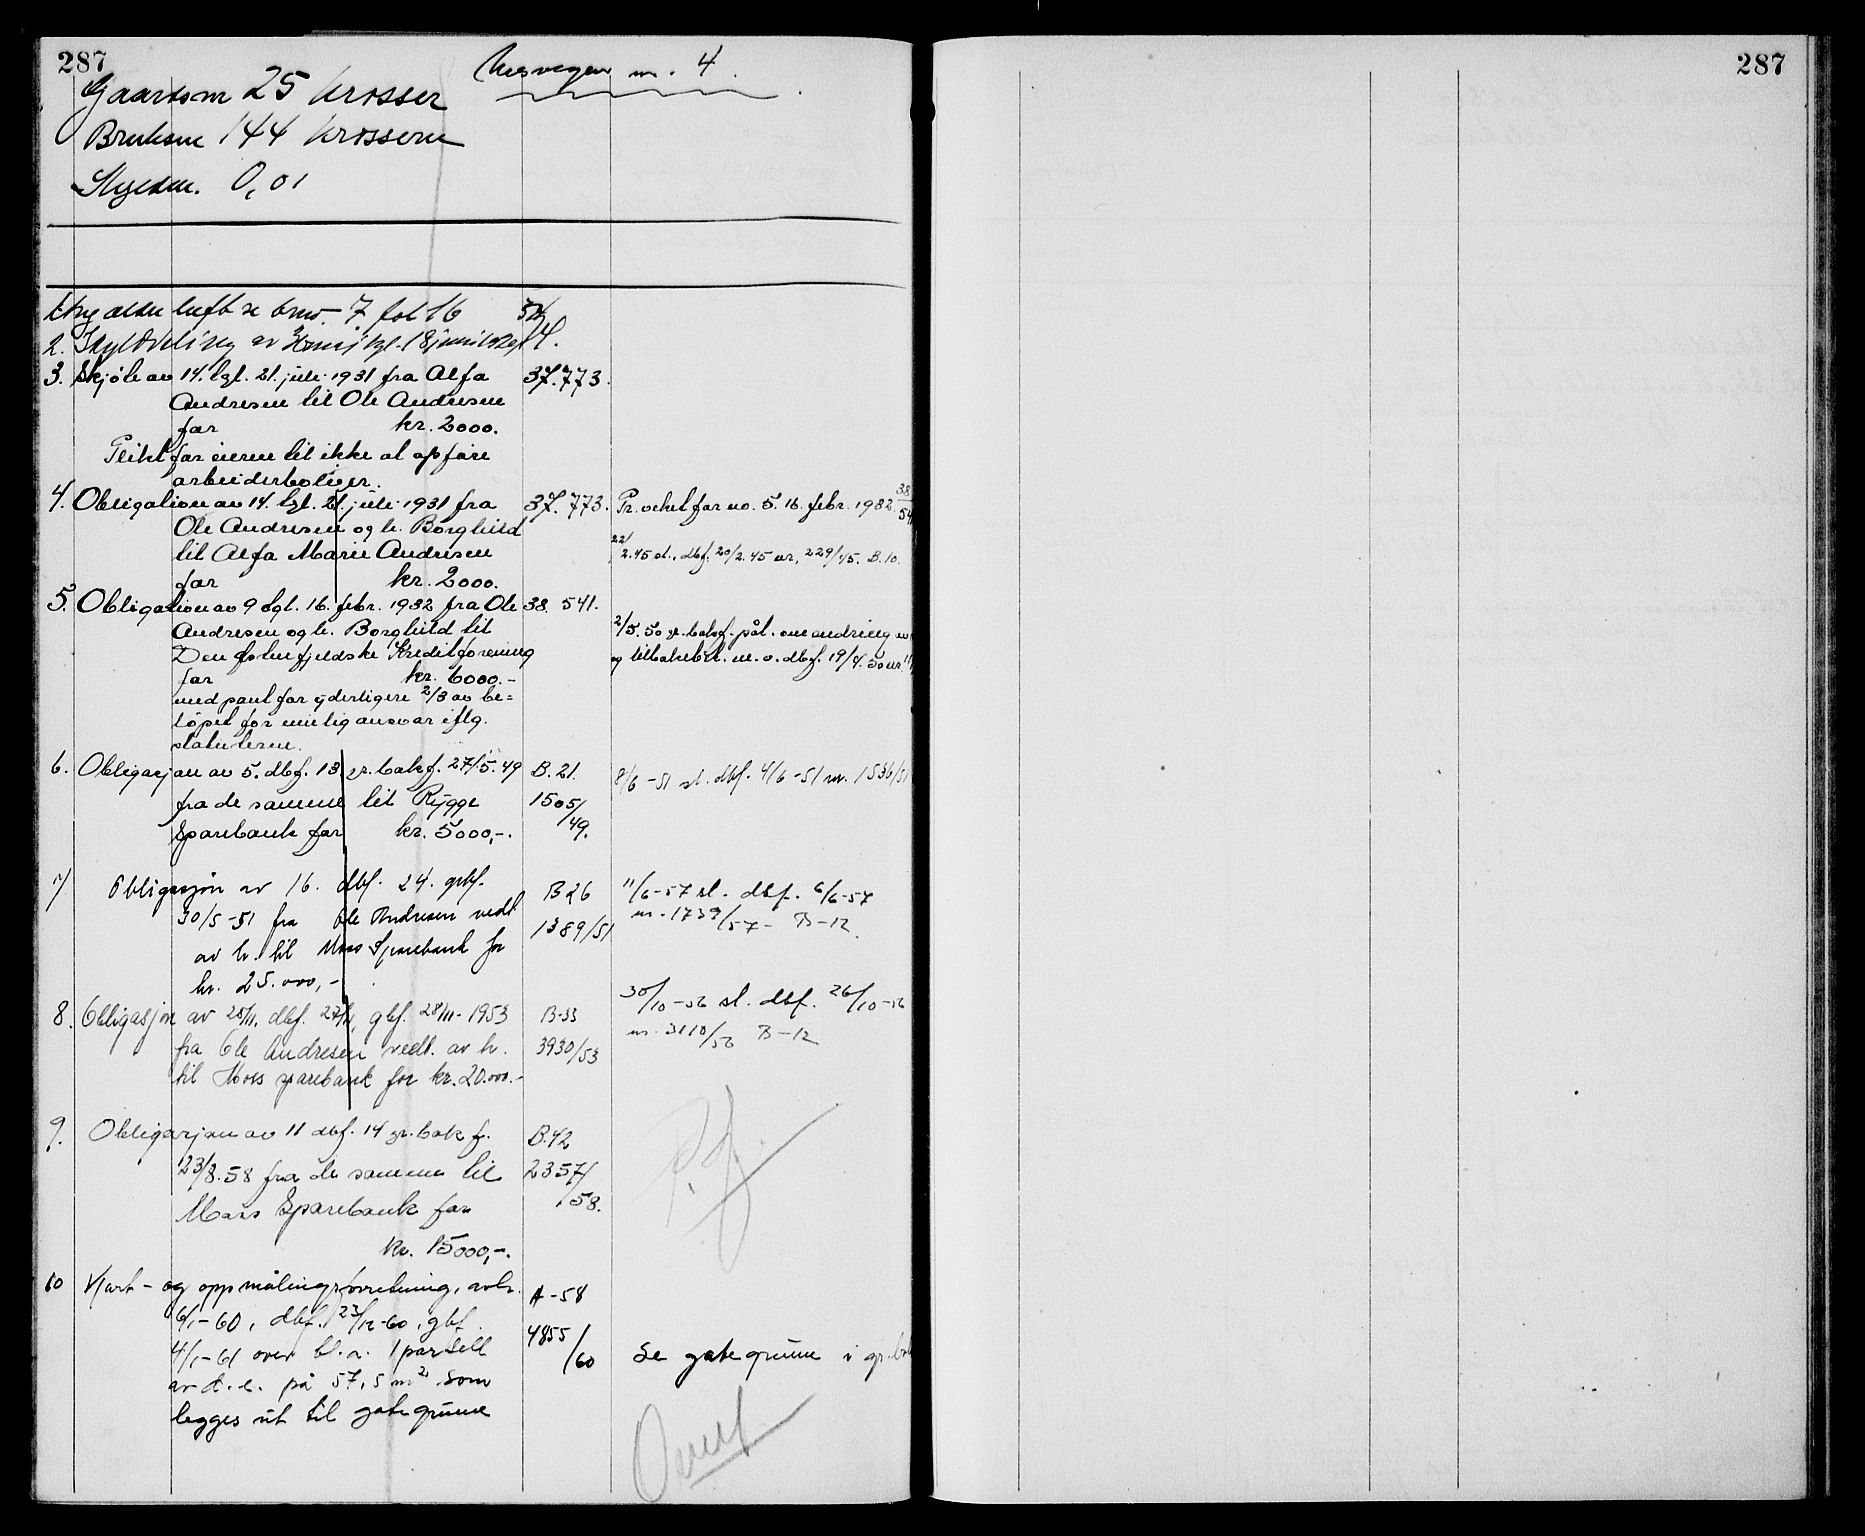 287
287
nr. 4
Gaardsnr 25 Krosser
Bruksnr 144 Krossern
Skylden. 0,01
ældre heft se brno 7 fol 16
2. Skylddeling av tgl. 37/4.
3. Skjöte av 14. tgl. 21. juli 1931 fra Alfa 37.773.
Andresen til Ole Andresen
for kr. 2000.
Plikt for eieren til ikke at opföre
arbeiderboliger.
4. Obligation av 14. tgl. 21 juli 1931 fra 37.773. Pr. veket for no. 5. 16. febr. 1932 38/541
Ole Andresen og h. Borghild
til Alfa Marie Andresen 22/2.45 sl., dbf. 20/2.45 nr. 229/45. B.10.
for kr. 2000.
5. Obligation av 9 tgl. 16. febr. 1932 fra Ole 38. 541.
Andresen og h. Borghild til 2/5.50 gr.bokf. påt. om endring av
Den Østenfjeldske Kreditforening og tilbakebet. m.v. dbf. 19/4.50 nr.
for kr. 6000.-
med pant for yderligere 2/3 av be=
löpet for mulig ansvar iflg.
statuterne.
6. Obligasjon av 5. dbf. 13. gr.bokf. 27/5.49 B. 21. 8/6 -51 sl. dbf. 4/6 -51 nr. 1536/51
fra de samme til Rygge 1505/
Sparebank for kr. 5000,-. 49.
7/ Obligasjon av 16. dbf. 24. grbf. B 26 11/6-57 sl. dbf. 6/6-57
30/5-51 fra Ole Andresen vedt. 1389/51 nr. 1739/57- B-12.
av h. til Moss Sparebank for
kr. 25.000,-
8. Obligasjon av 25/11, dbf. 27/11, gbf. 28/11-1953 B-33 30/10-56 sl. dbf. 26/10-56
fra Ole Andresen vedt. av h. 3930/53 nr. 3110/56 B-12
til Moss sparebank for kr. 20.000.-
9. Obligasjon av 11 dbf. 14 gr.bok f. B.42
23/8.58 fra de samme til 2357/
Moss Sparebank for 58.
kr. 15000,-.
10 Kart- og oppmålingsforretning, avh. A-58
6/1-60, dbf. 23/12-60, gbf. 4855/60
4/1-61 over bl.a. 1 parsell se gategrunn i gr.bok
av d.e. på 57,5 m2 som
legges ut til gategrunn